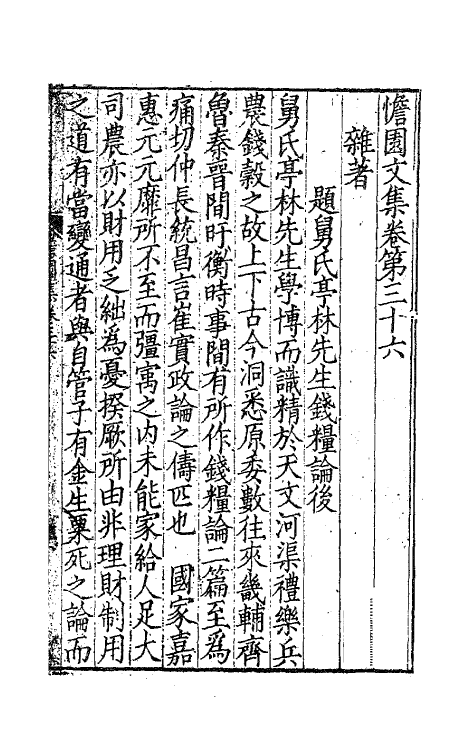 憺園文集卷第三十六
雜著
題舅氏亭林先生錢糧論後
舅氏亭林先生學博而識精於天文河渠禮樂兵
農錢穀之故上下古今洞悉原委數往來畿輔齊
魯秦晉間盱衡時事間有所作錢糧論二篇至爲
痛切仲長統昌言崔寔政論之儔匹也　國家嘉
惠元元靡所不至而彊寓之内未能家給人足大
司農亦以財用乏絀為憂揆厥所由非理財制用
之道有當變通者與自管子有金生粟死之論而